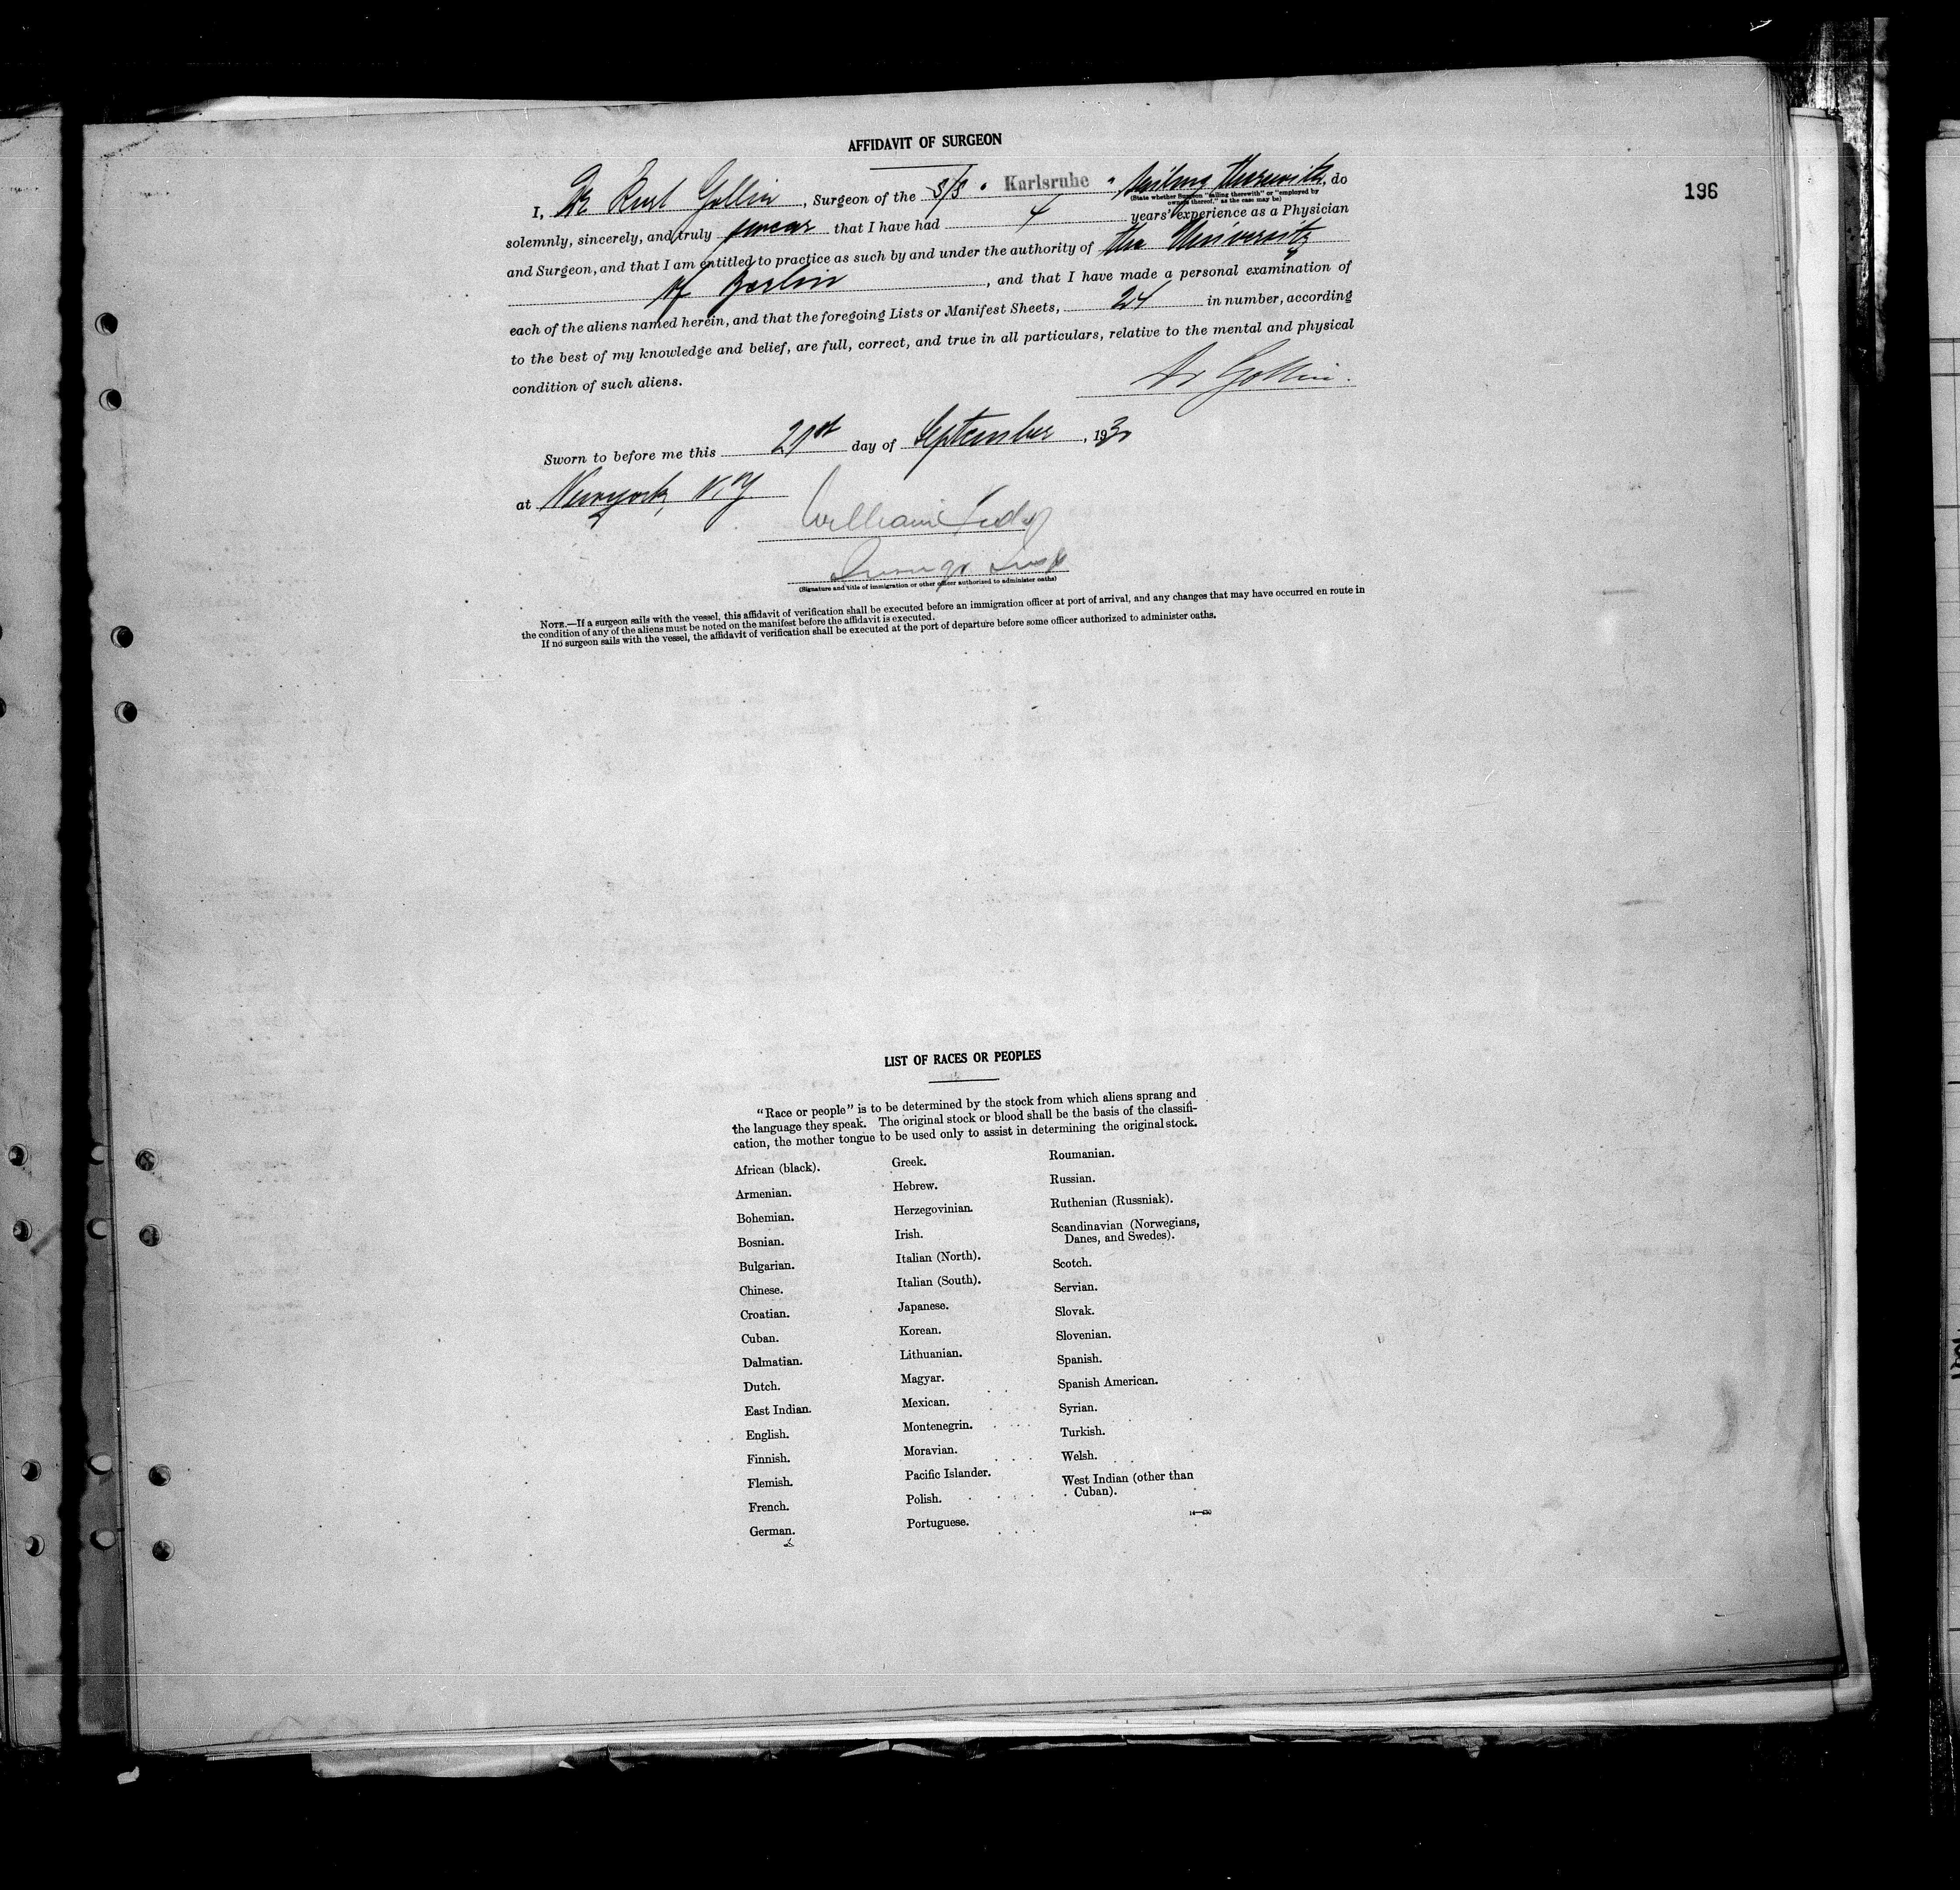 AFFIDAVIT OF SURGEON
196
I, Dr Kurt Gollin, Surgeon of the S/S " Karlsruhe " Sailing therewith, do
(State whether Surgeon "sailing therewith" or "employed by
owners thereof," as the case may be)
solemnly, sincerely, and truly swear that I have had 4 years' experience as a Physician
and Surgeon, and that I am entitled to practice as such by and under the authority of the University
of Berlin, and that I have made a personal examination of
each of the aliens named herein, and that the foregoing Lists or Manifest Sheets, 24 in number, according
to the best of my knowledge and belief, are full, correct, and true in all particulars, relative to the mental and physical
condition of such aliens.
Dr Gollin.
Sworn to before me this 21st day of September, 193
at Newyork, N.Y.
William
(Signature and title of immigration or other officer authorized to administer oaths)
NOTE.—If a surgeon sails with the vessel, this affidavit of verification shall be executed before an immigration officer at port of arrival, and any changes that may have occurred en route in
the condition of any of the aliens must be noted on the manifest before the affidavit is executed.
If no surgeon sails with the vessel, the affidavit of verification shall be executed at the port of departure before some officer authorized to administer oaths.
LIST OF RACES OR PEOPLES
"Race or people" is to be determined by the stock from which aliens sprang and
the language they speak. The original stock or blood shall be the basis of the classifi-
cation, the mother tongue to be used only to assist in determining the original stock.
African (black).
Armenian.
Bohemian.
Bosnian.
Bulgarian.
Chinese.
Croatian.
Cuban.
Dalmatian.
Dutch.
East Indian.
English.
Finnish.
Flemish.
French.
German.
Greek.
Hebrew.
Herzegovinian.
Irish.
Italian (North).
Italian (South).
Japanese.
Korean.
Lithuanian.
Magyar.
Mexican.
Montenegrin.
Moravian.
Pacific Islander.
Polish.
Portuguese.
Roumanian.
Russian.
Ruthenian (Russniak).
Scandinavian (Norwegians,
Danes, and Swedes).
Scotch.
Servian.
Slovak.
Slovenian.
Spanish.
Spanish American.
Syrian.
Turkish.
Welsh.
West Indian (other than
Cuban).